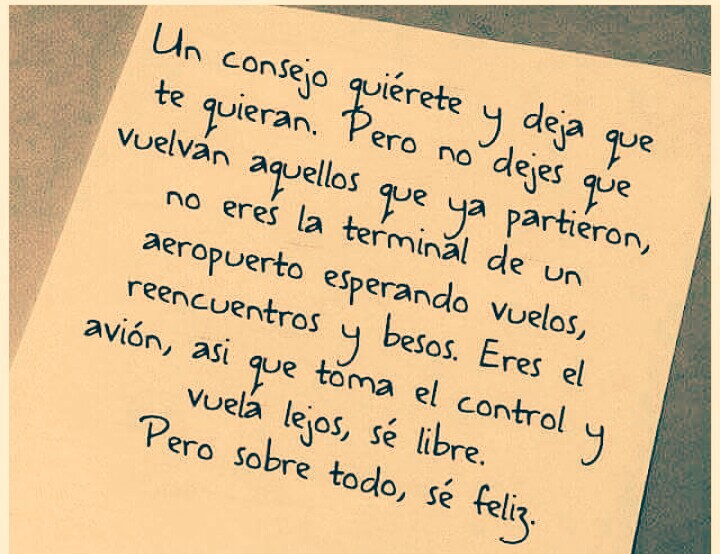 Un consejo quiérete y deja que
te quieran. Pero no dejes que
vuelvan aquellos que ya partieron,
no eres la terminal de un
aeropuerto esperando vuelos,
reencuentros y besos. Eres el
avión, asi que toma el control y
vuela lejos, sé libre.
Pero sobre todo, sé feliz.